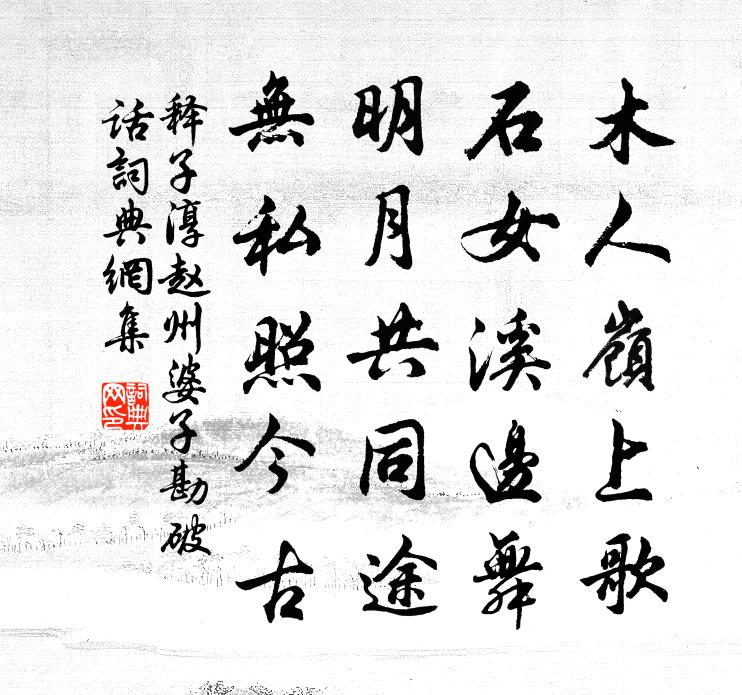 木人嶺上歌
石女溪邊舞
明月共同途
無私照今古
释子淳赵州婆子勘破
話詞典網集
詞典
网印